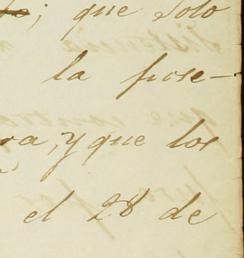 ; que solo
la puse-
ra, y que los
el 28 de